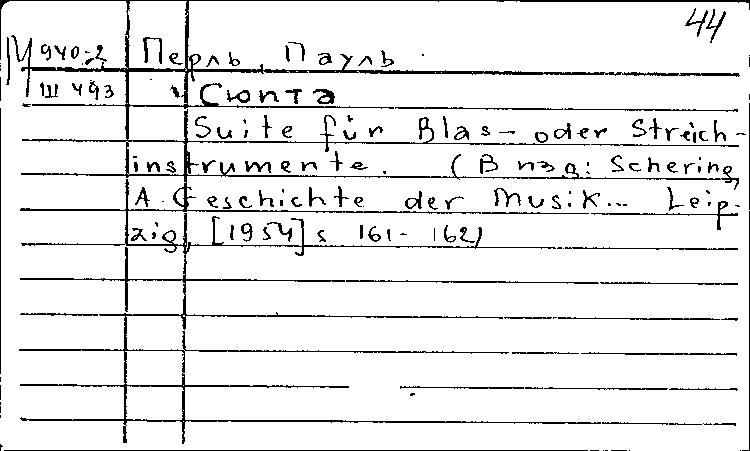 44
М 940-2 Перль, Пауль
Ш 493 Сюита
Suite für Blas- oder Streich-
instrumente. (В изд: Schering,
A. Geschichte der Musik... Leip-
zig, [1954] s 161-162)